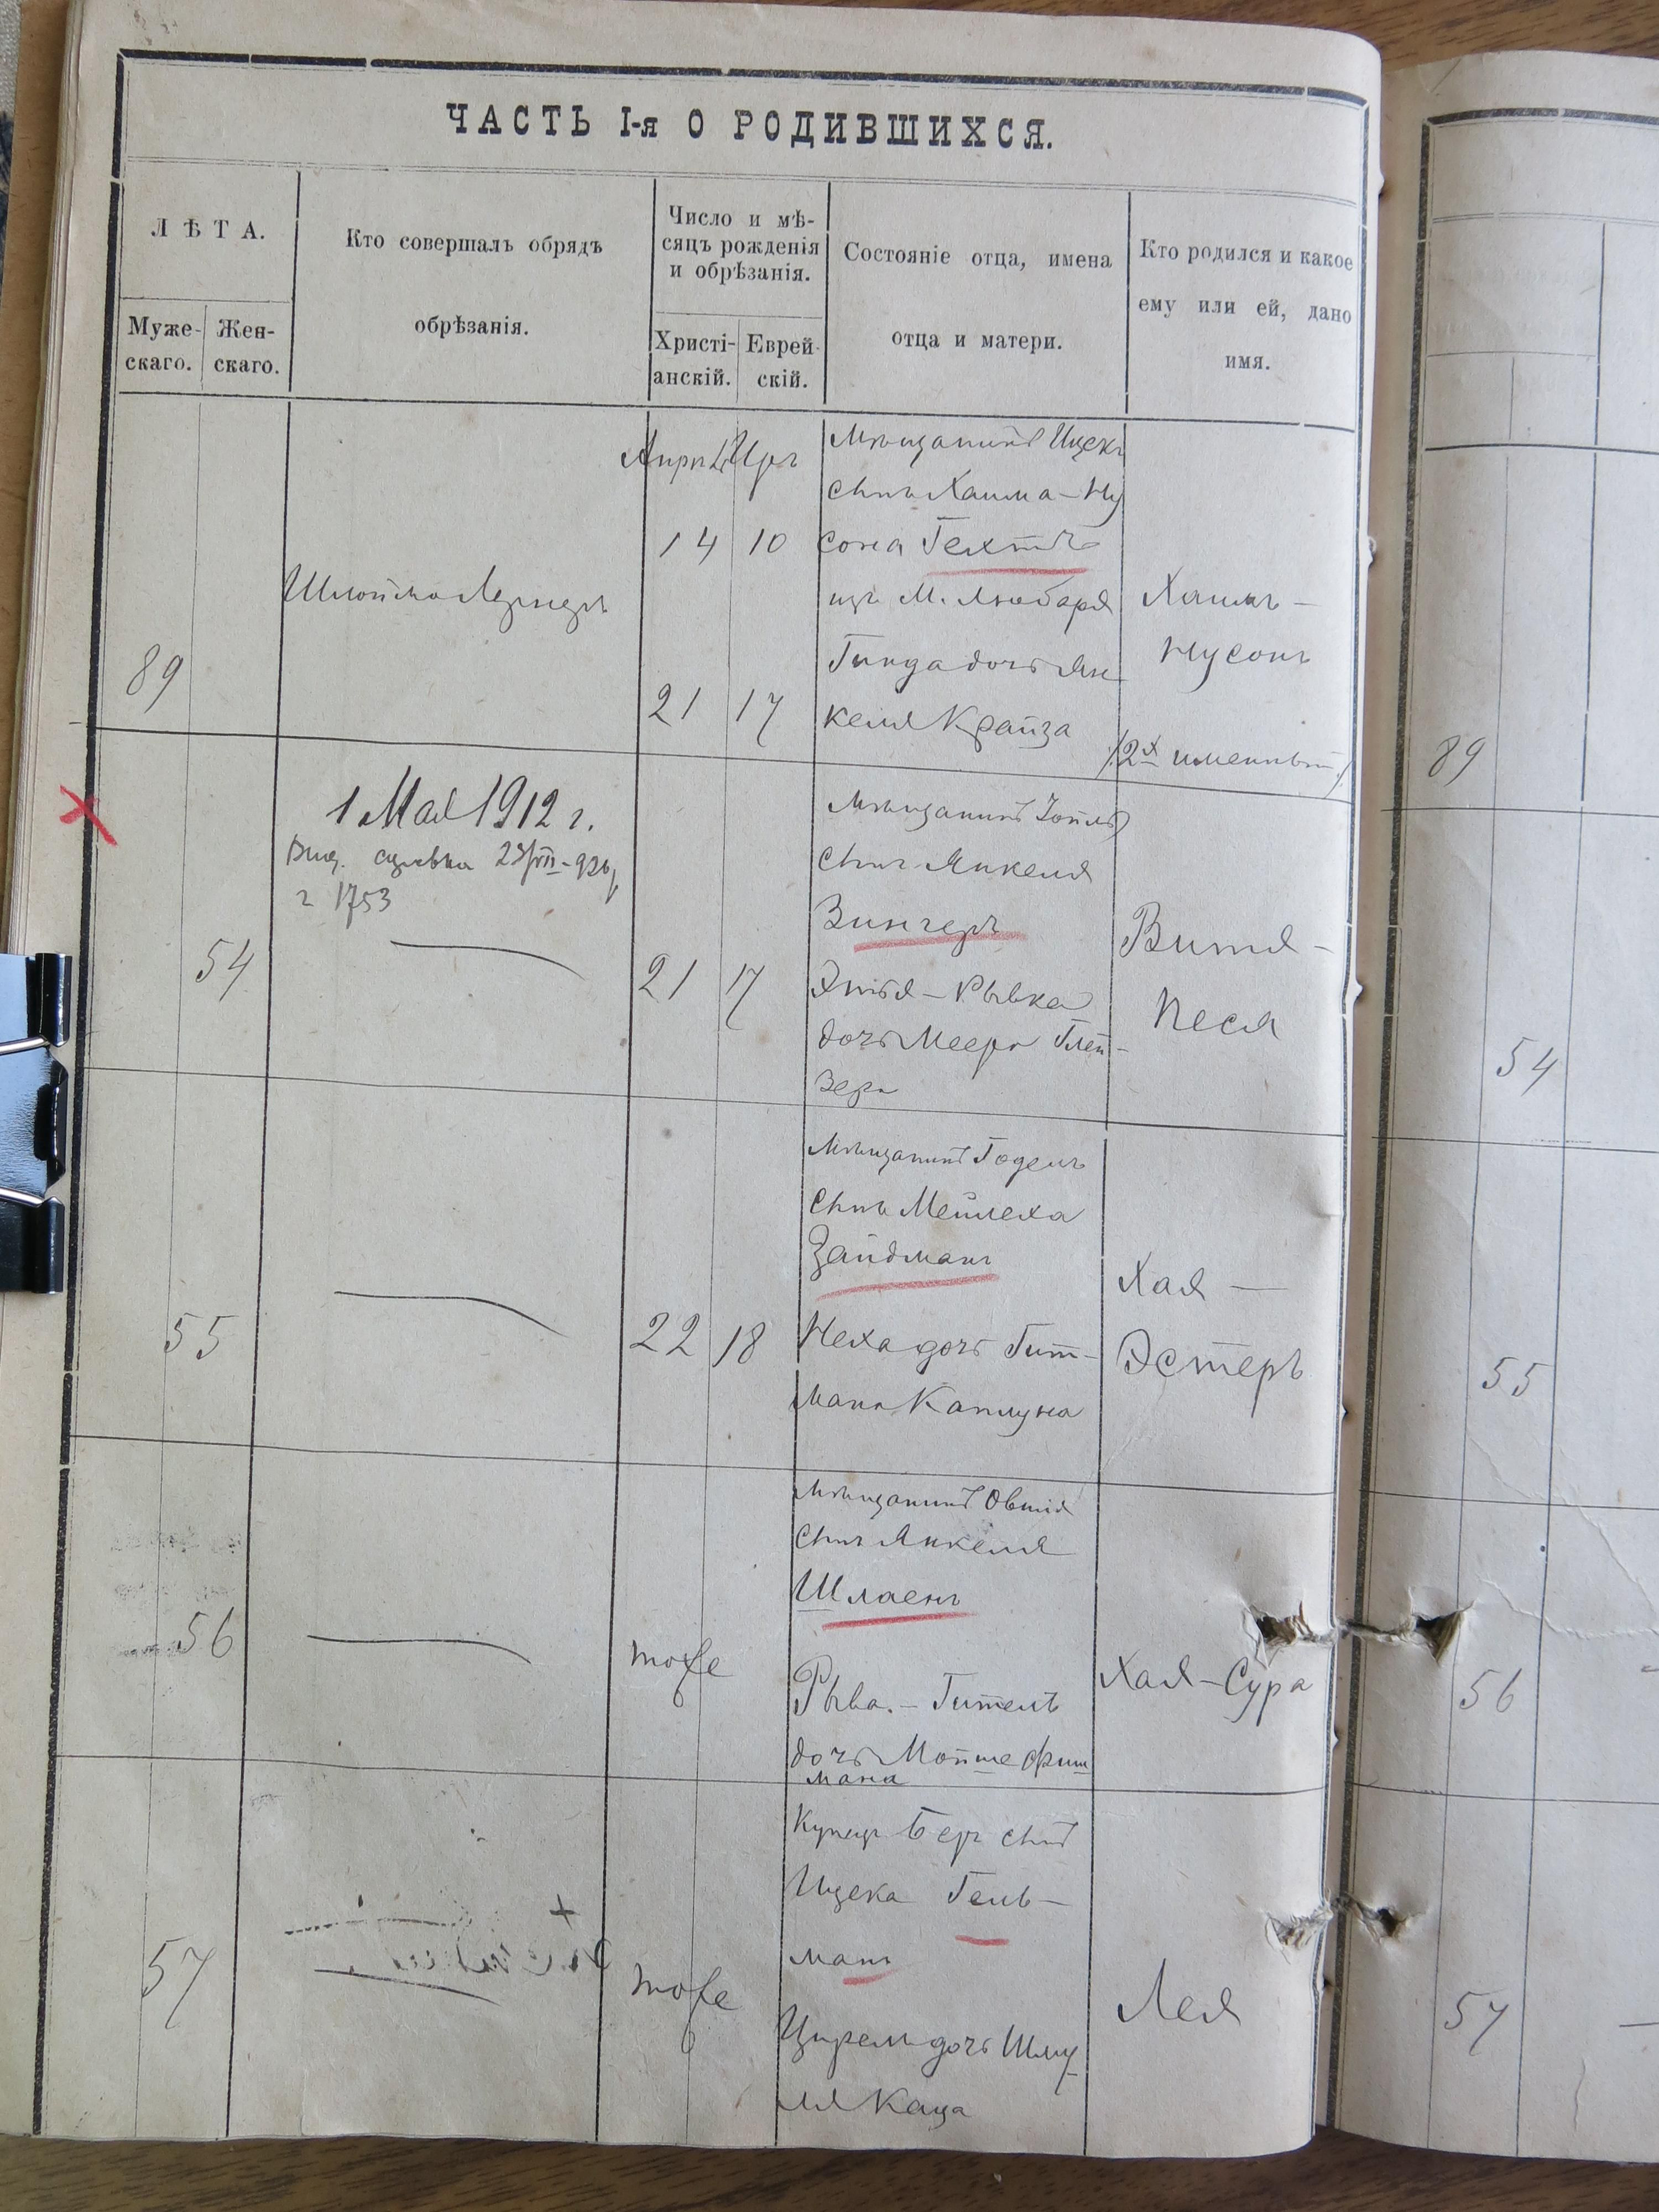 ЧАСТЬ I-я О РОДИВШИХСЯ.
ЛѢТА.
Муже-
скаго.
Жен-
скаго.
Кто совершалъ обрядъ
обрѣзанія.
Число и мѣ-
сяцъ рожденія
и обрѣзанія.
Христі-
анскій.
Еврей-
скій.
Состояніе отца, имена
отца и матери.
Кто родился и какое
ему или ей, дано
имя.
89
Шлойма
14
10
21
17
Мѣщанинъ Ицекъ
сынъ Хаима-Ну
сона Гехтъ
изъ М. Любаря
Гинда дочь Ян
келя Крайза
Хаимъ-
Нусонъ
89
54
1 Мая 1912 г.
1753
21
17
Мѣщанинъ
сынъ Янкеля
Зингеръ
Этья-Рывка
дочь Меера Глей-
зера
Витя-
Песя
54
55
22
18
Мѣщанинъ Годель
сынъ Мейлеха
Зайдманъ
Неха дочь Гит-
мана Каплуна
Хая-
Эстеръ
55
56
тоже
Мѣщанинъ Овшія
сынъ Янкеля
Шлаенъ
Рыва-Гитель
дочь Мойше Фиш
мана
Хая-Сура
56
57
тоже
Купецъ Беръ сынъ
Ицека Гель-
манъ
дочь Шму
ля Каца
Лея
57